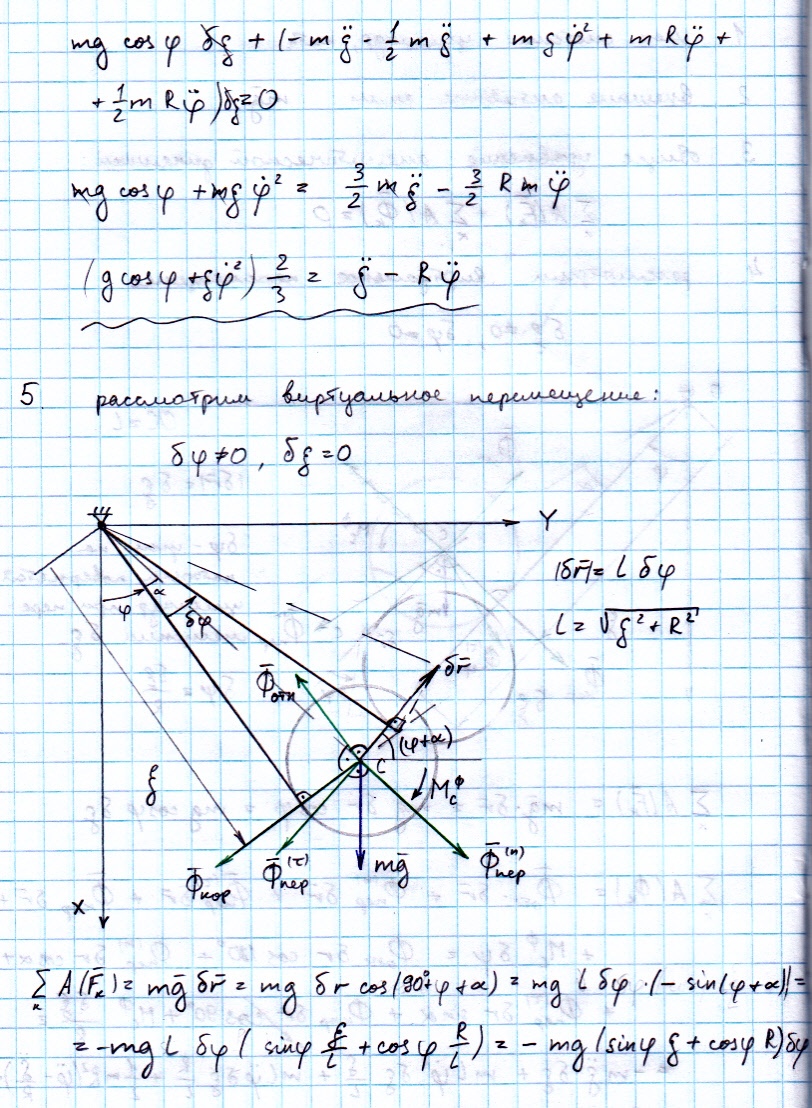 mg cos φ δξ + (- m ξ̈ - 1/2 m ξ̈ + m ξ φ̇² + m R φ̈ +
+ 1/2 m R φ̈ ) δξ = 0
mg cos φ + mξ φ̇² = 3/2 m ξ̈ - 3/2 R m φ̈
(g cos φ + ξ φ̇²) 2/3 = ξ̈ - R φ̈
5. рассмотрим виртуальное перемещение:
δφ ≠ 0, δξ = 0
Y
|δr̄| = L δφ
L = √(ξ² + R²)
φ
α
δφ
δr̄
Φ̄отн
(φ+α)
C
M_C^Φ
ξ
Φ̄кор
Φ̄пер^(τ)
mḡ
Φ̄пер^(n)
X
∑ₖ A(F̄ₖ) = mḡ δr̄ = mg δr cos(90°+φ+α) = mg L δφ · (- sin(φ+α)) =
= -mg L δφ ( sinφ ξ/L + cosφ R/L ) = - mg (sinφ ξ + cosφ R) δφ